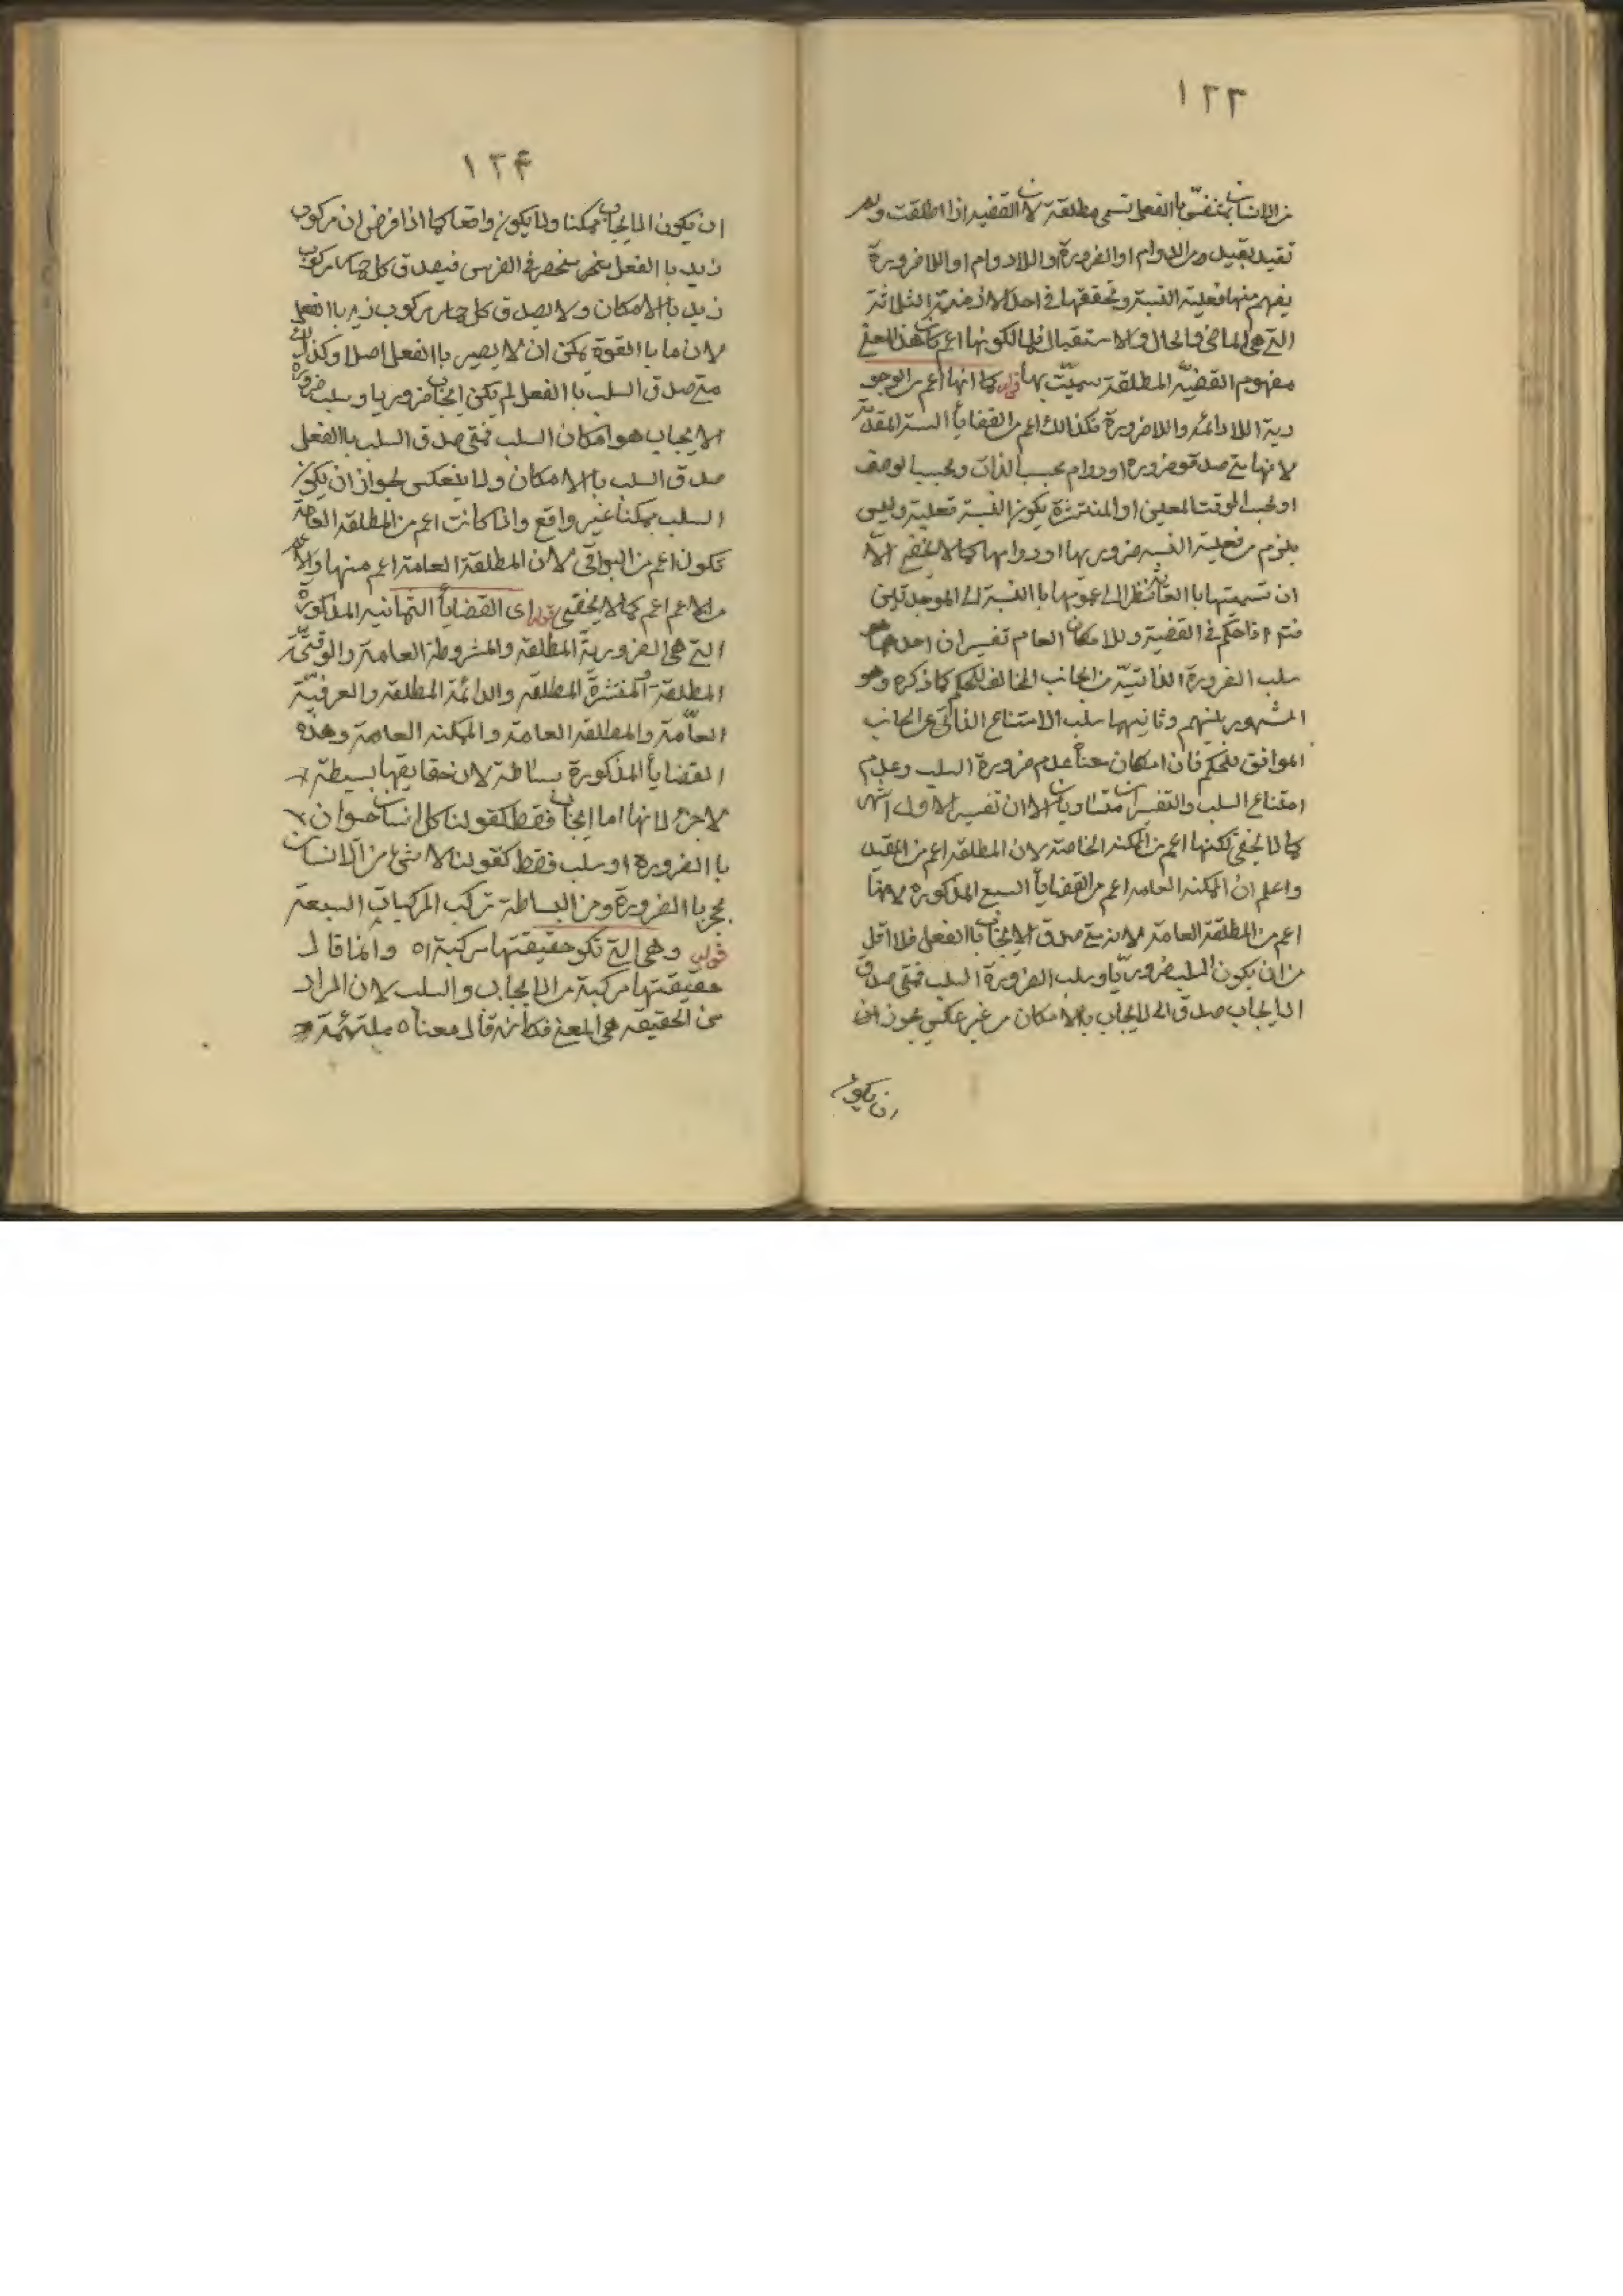 ١٢٣
من الانسان بمتنفس باالفعل تسمى مطلقة لان القضيه اذا اطلقت ولم
تقيد بقيد من الدوام او الضرورة او اللادوام او اللاضرورة
يفهم منها فعلية النسبة وتحققها في احد الازمنة الثلاثة
التي هي الماضي والحال والاستقبال فلما لكونها اعم كان هذا المعنى
مفهوم القضيّه المطلقة سميّت بها قوله كما انها اعم من الوجو
دية اللادائمه واللاضرورة فكذالك اعم من القضايأ الستة المقدمة
لانها متى صدق ضرورة او دوام بحسب الذات وبحسب الوصف
او بحسب الوقت المعين او المنتشرة يكون النسبة فعلية وليس
يلزم من فعلية النسبه ضروريها او دوامها كما لا يخفى الا
ان تسميتها باالعامة نظرا الى عمومها باالنسبة الى الموجدتين
اذا حكم في القضية وللامكان العام تفسيران احدهما
سلب الضرورة الذاتيّة من الجانب المخالف للحكم كما ذكره وهو
المشهور بينهم وثانيهما سلب الامتناع الذاتي عن الجانب
الموافق للحكم فان امكان عدم ضرورة السلب وعدم
امتناع السلب والتفسيران متساويان الا ان تفسير الاول اشهر
كما لا يخفى لكنها اعم من الممكنه الخاصة لان المطلقه اعم من المقيد
واعلم ان الممكنه العامه اعم من القضايأ السبع المذكوره لانها
اعم من المطلقة العامة لانه متى صدق الايجاب باالفعل فلا اقل
من ان يكون السلب ضروريّا وسلب الضرورة السلب فمتى صدق
الايجاب صدق الى الايجاب بالامكان من غير عكس يجوز ان
ان يكون
١٢٤
ان يكون الايجاب ممكنا ولا يكون واقعا كما اذا فرض ان مركوب
زيد باالفعل منحصر في الفرس فيصدق كل حمار مركوب
زيد باالامكان ولا يصدق كل حمار مركوب زيد باالفعل
لان ما باالقوة يمكن ان لا يصير باالفعل اصلا وكذالك
متى صدق السلب باالفعل لم يكن ايجاب ضروريا وسلب ضرورة
الايجاب هو امكان السلب فمتى صدق السلب باالفعل
صدق السلب باالامكان ولا ينعكس لجواز ان يكون
السلب ممكنا غير واقع واذا كانت اعم من المطلقه العامة
تكون اعم من البواقي لان المطلقة العامة اعم منها والاعم
من الاعم اعم كما لا يخفى قوله اى القضايأ الثمانيه المذكورة
التي هي الضرورية المطلقه والمشروطة العامة والوقتيّة
المطلقة والمنتشرة المطلقه والدائمة المطلقه والعرفيّة
العامّة والمطلقه العامة والممكنه العامة وهذه
القضايأ المذكورة بسائطة لان حقايقها بسيطة
لا جزء لانها اما ايجاب فقط كقولنا كل انسان حيوان
باالضرورة او سلب فقط كقولنا لا شئ من الانسان
بحجر باالضرورة ومن البساطة تركب المركبات السبعة
قوله وهي التي تكو حقيقتها مركبة اه وانما قال
حقيقتها مركبة من الايجاب والسلب لان المراد
من الحقيقه هي المعنى فكانه قال معناه ملتئمة